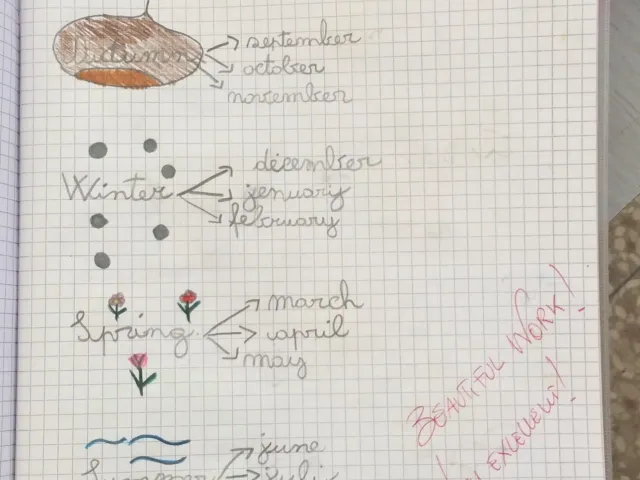 Autumn
september
october
november
Winter
décember
jenuary
february
Spring
march
april
may
Summer
june
BEAUTIFUL WORK!
EXCELLENT!